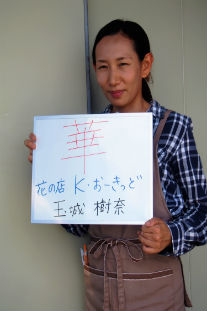 華
花の店 K・おーきっど
玉城 樹奈